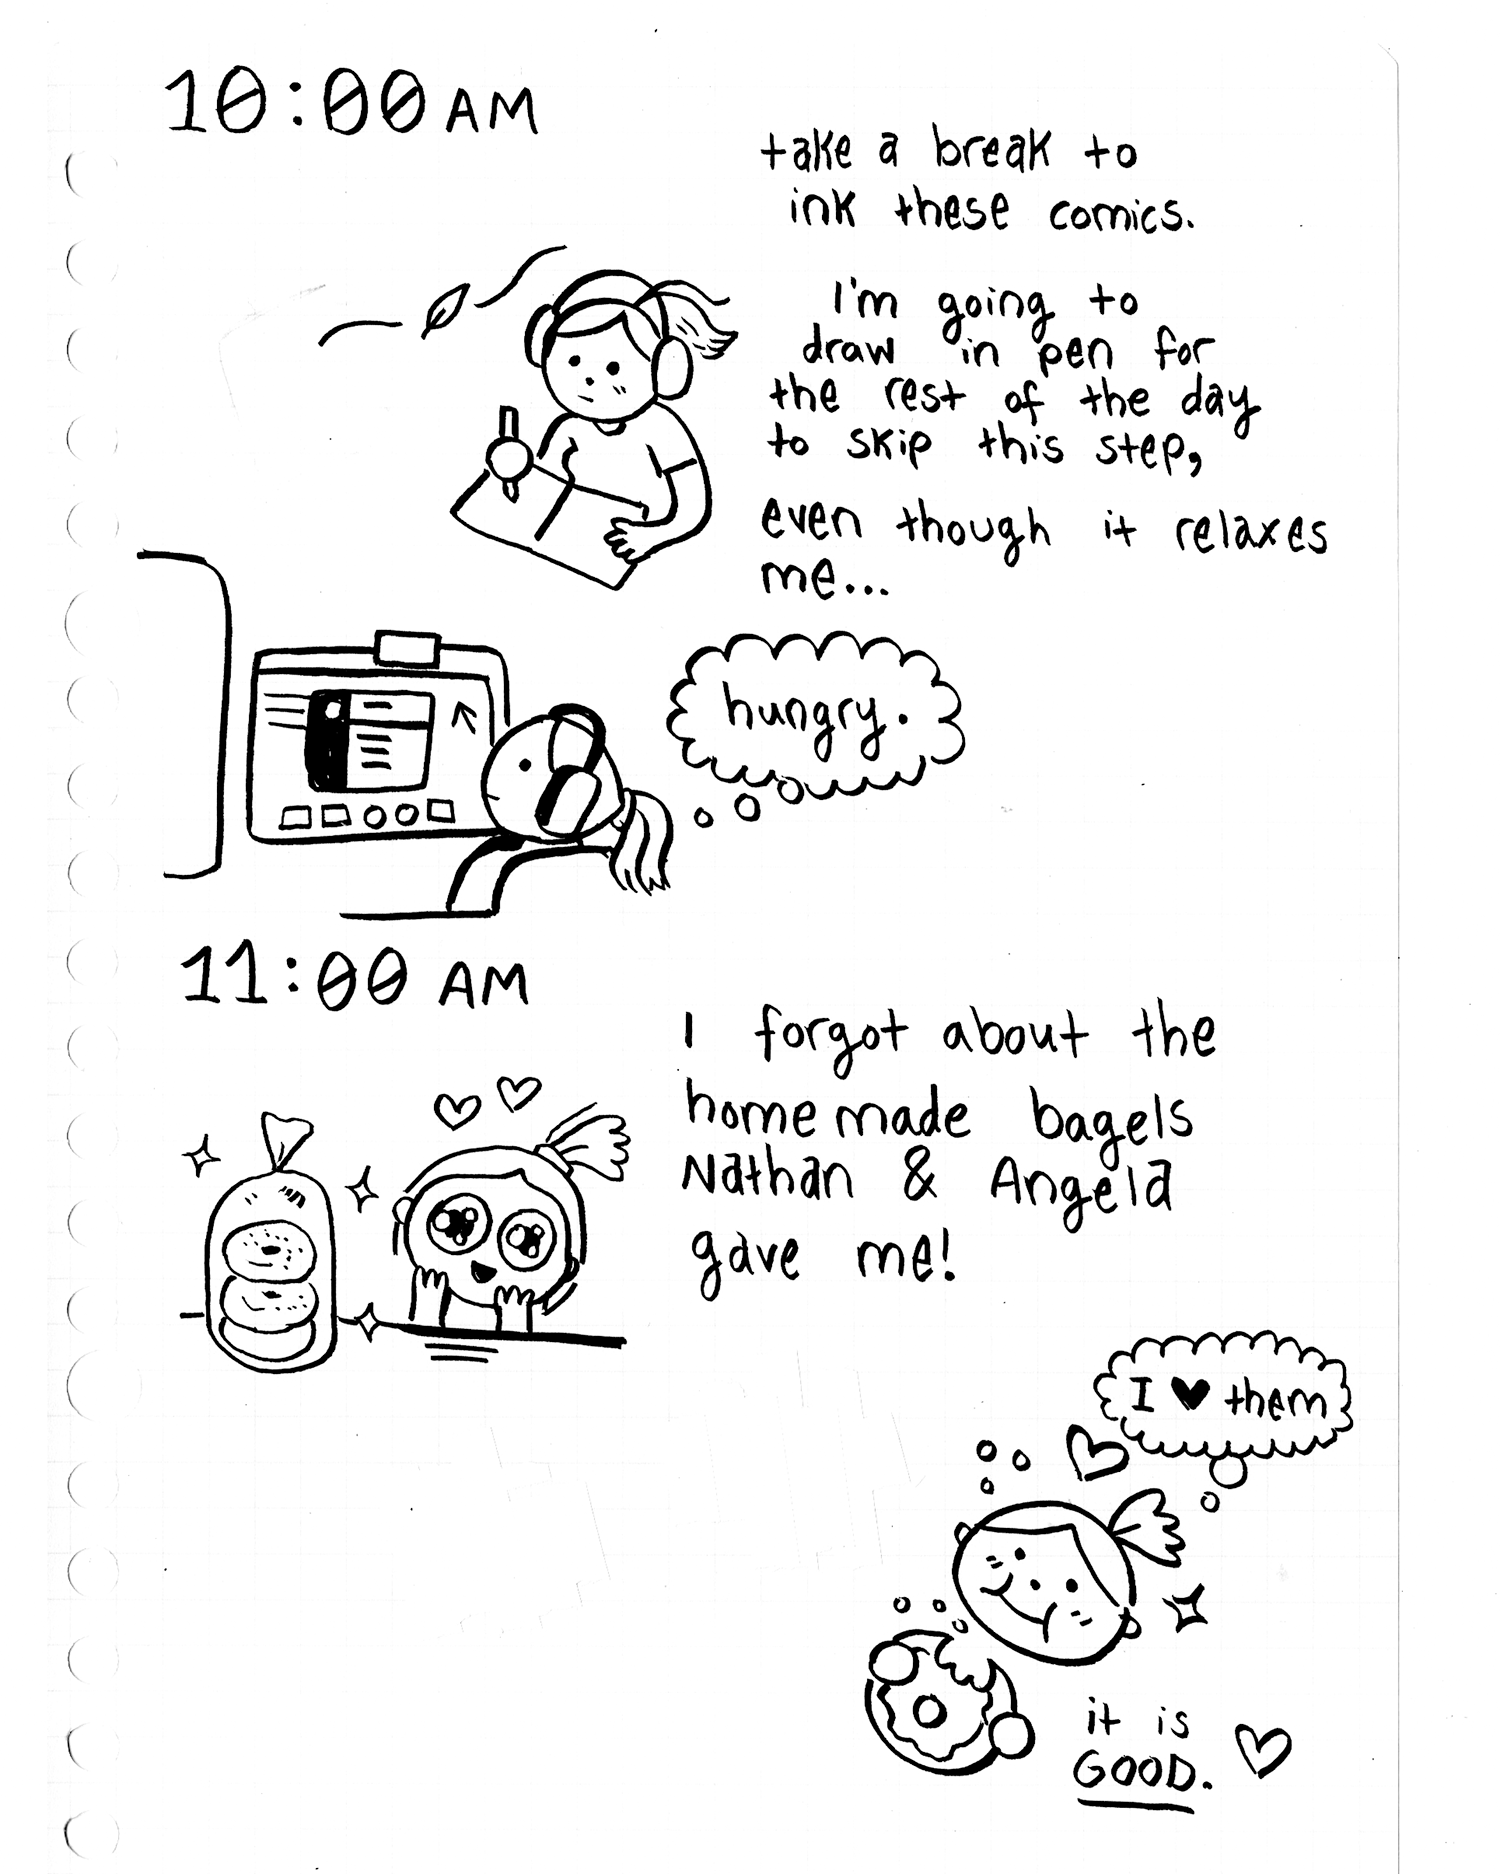 10:00 AM
take a break to
ink these comics.
I'm going to
draw in pen for
the rest of the day
to skip this step,
even though it relaxes
me...
hungry.
11:00 AM
I forgot about the
homemade bagels
Nathan & Angela
gave me!
I ♥ them
it is
GOOD.